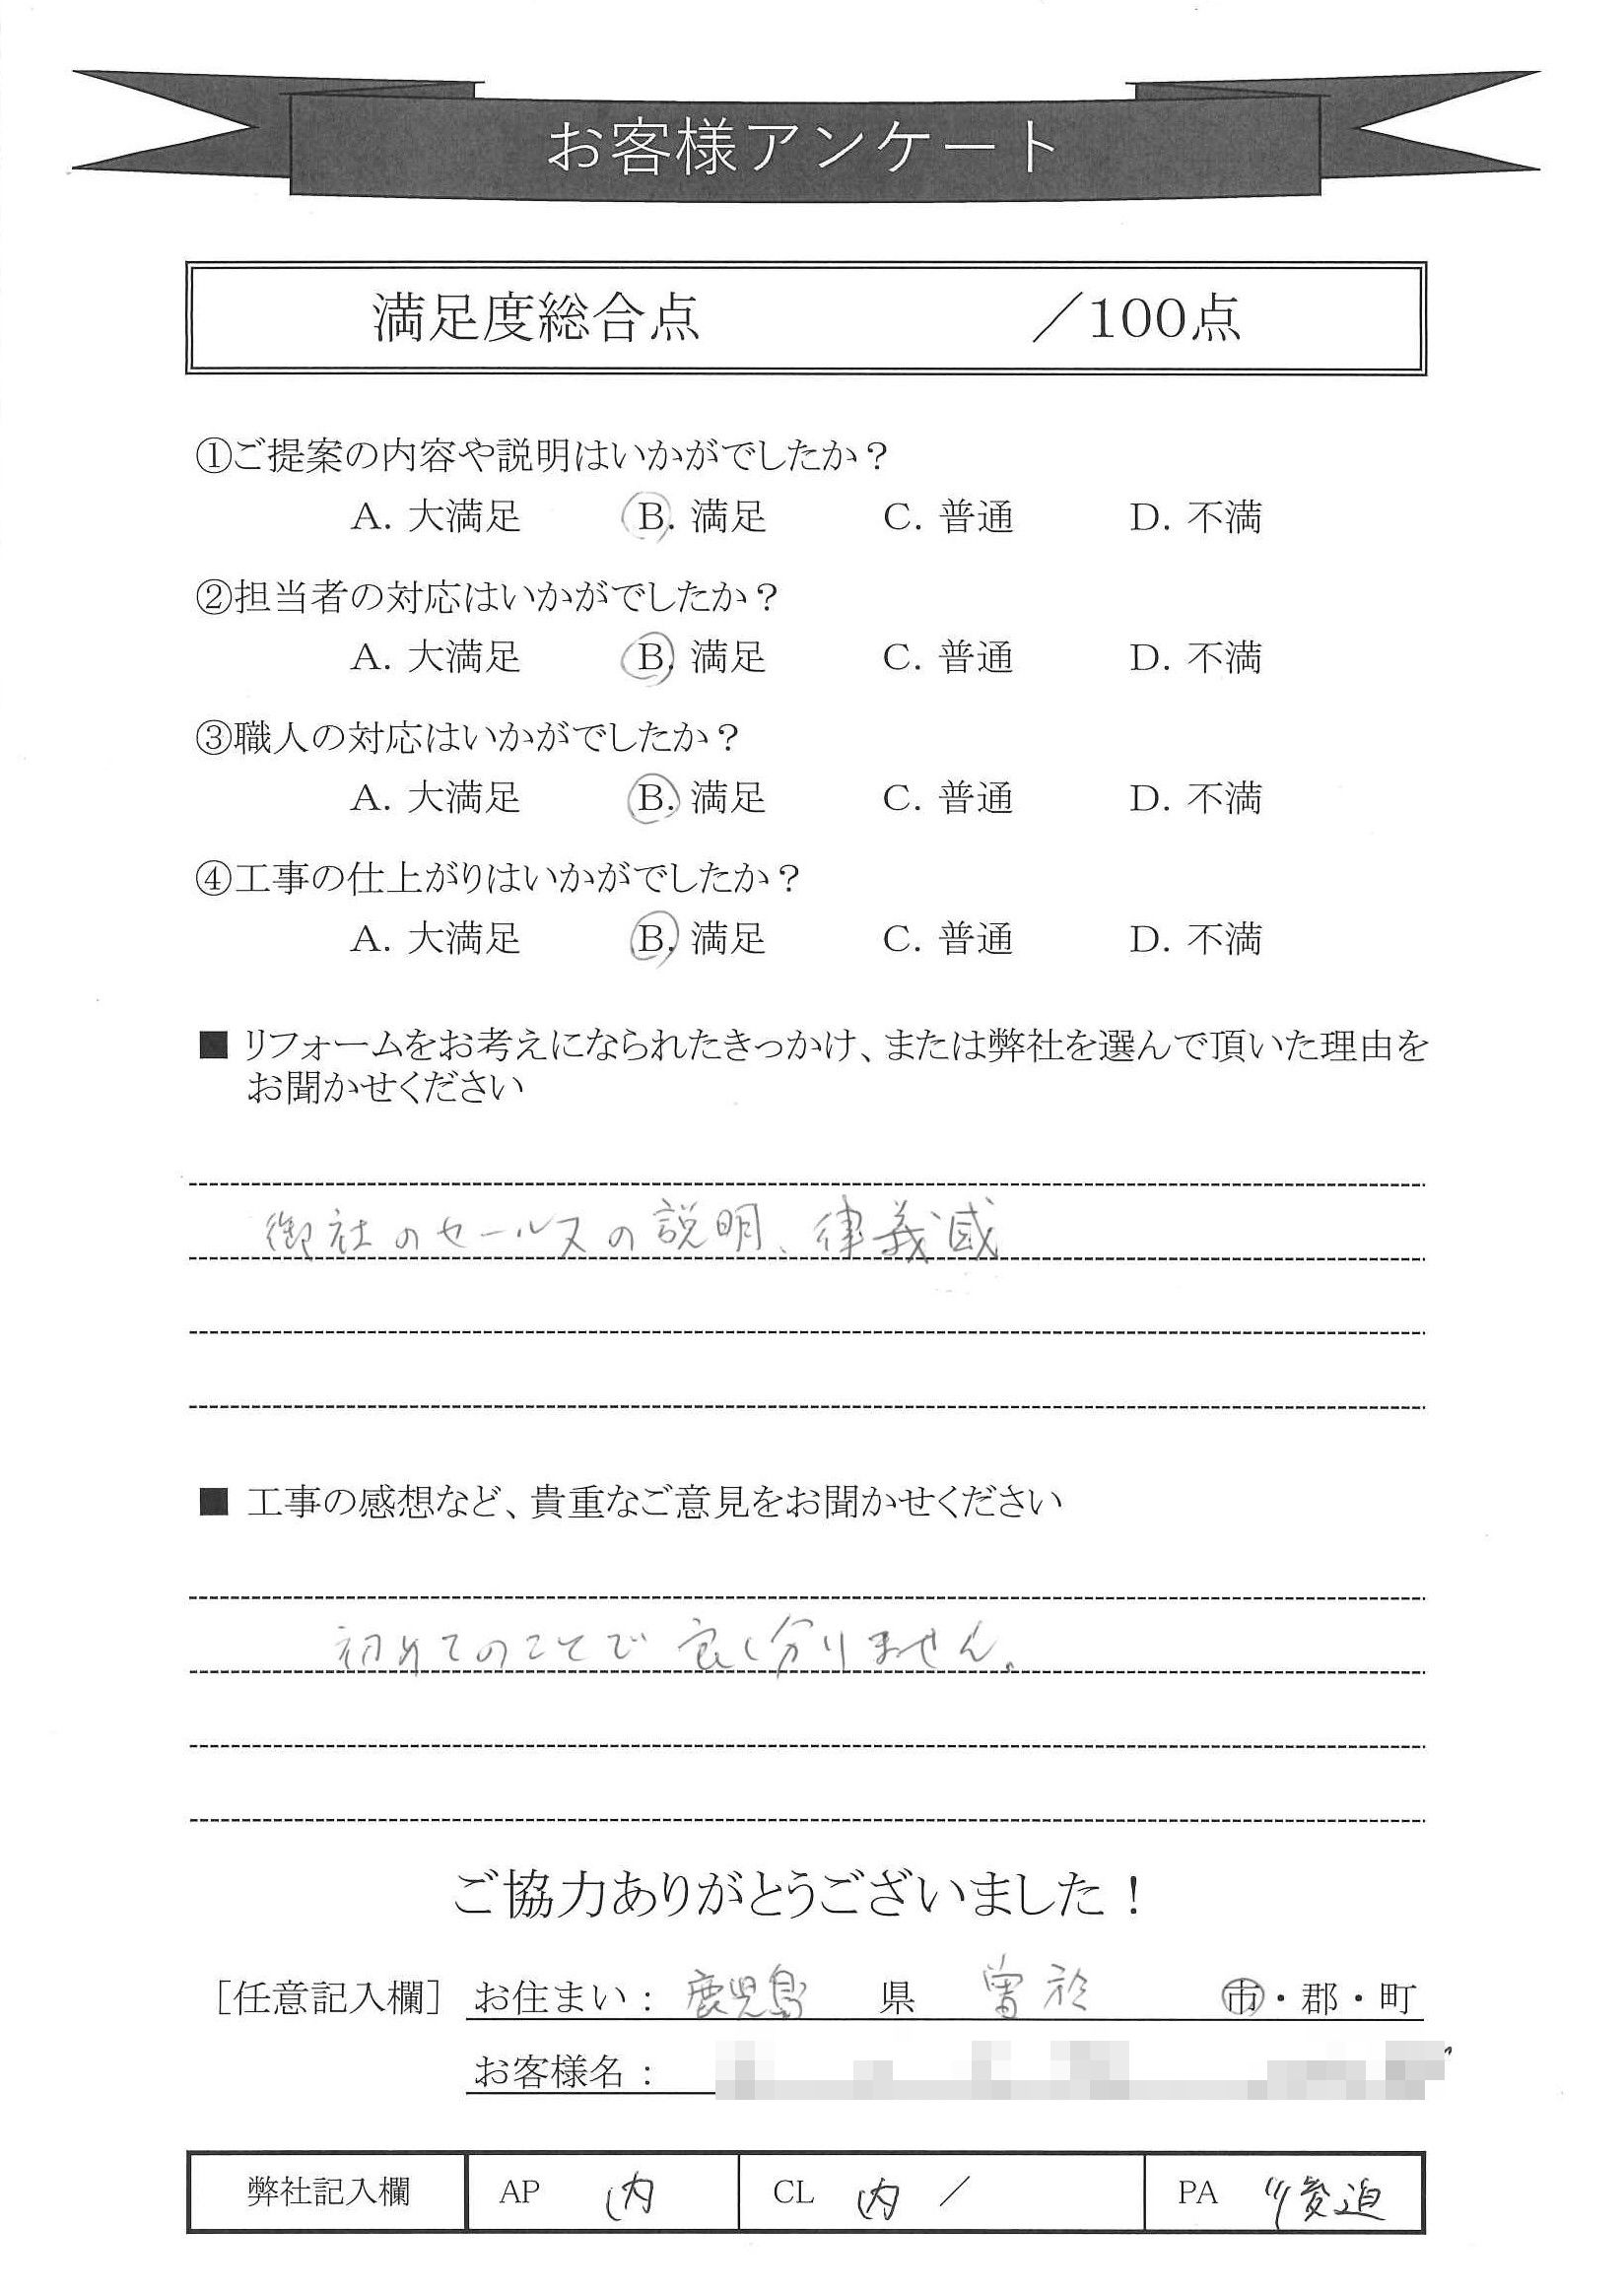 お客様アンケート
満足度総合点　／100点
①ご提案の内容や説明はいかがでしたか？
A. 大満足　B. 満足　C. 普通　D. 不満
②担当者の対応はいかがでしたか？
A. 大満足　B. 満足　C. 普通　D. 不満
③職人の対応はいかがでしたか？
A. 大満足　B. 満足　C. 普通　D. 不満
④工事の仕上がりはいかがでしたか？
A. 大満足　B. 満足　C. 普通　D. 不満
■ リフォームをお考えになられたきっかけ、または弊社を選んで頂いた理由を
お聞かせください
御社のセールスの説明、律義感
■ 工事の感想など、貴重なご意見をお聞かせください
初めてのことで良く分りません。
ご協力ありがとうございました！
［任意記入欄］お住まい：鹿児島　県　曽於　市・郡・町
お客様名：
弊社記入欄　AP　内　CL　内　／　PA